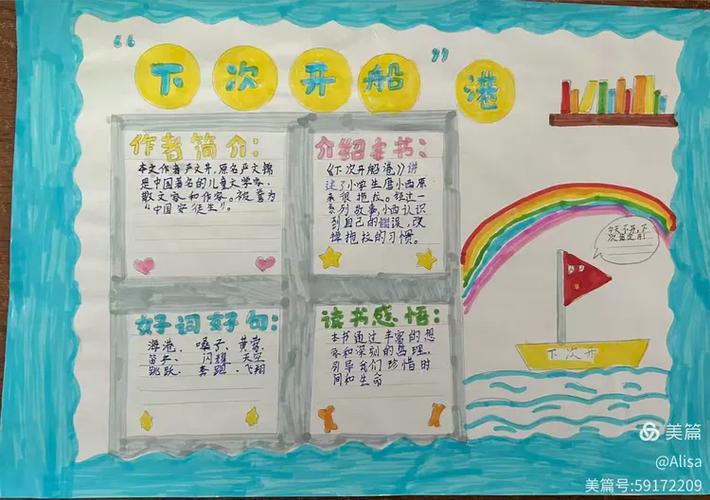 “下次开船”港
作者简介：
本文作者严文井，原名严文锦
是中国著名的儿童文学家、
散文家和作家。被誉为
“中国安徒生”。
介绍本书：
《下次开船港》讲
述了小学生唐小西原
来很拖拉。经过一
系列故事，小西认识
到自己的错误，改
掉拖拉的习惯。
好词好句：
海港、嗓子、黄莺、
笛卡、闪耀、天空
跳跃、奔跑、飞翔
读书感悟：
本书通过丰富的想
象和深刻的哲理，
引导我们珍惜时
间和生命
下次开
美篇
@Alisa
美篇号:59172209